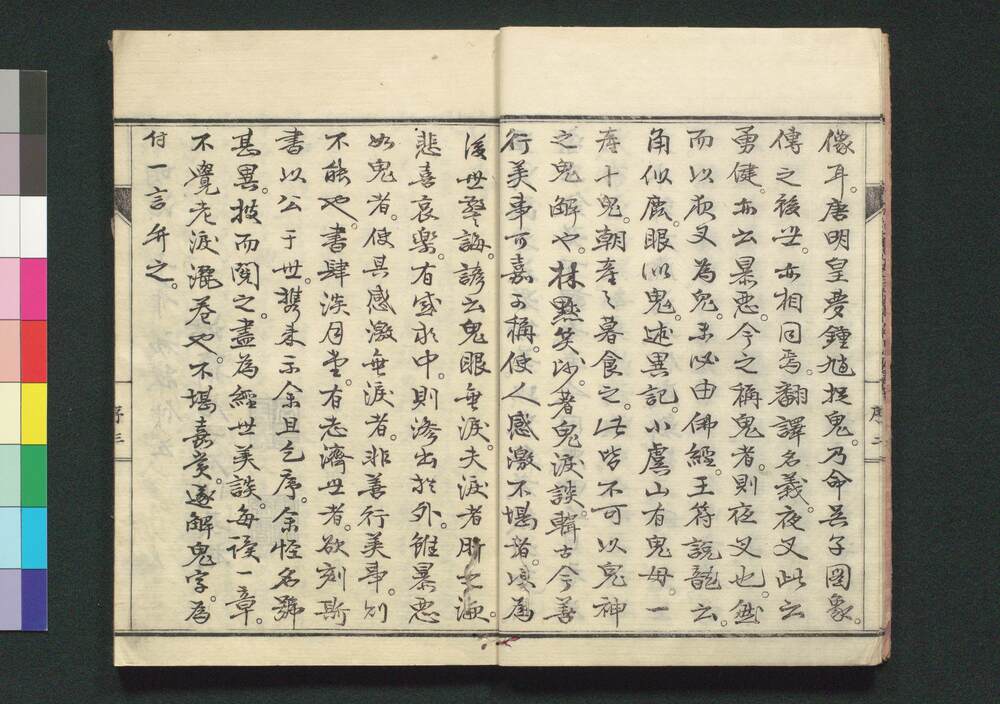 像耳。唐明皇夢鍾馗捉鬼。乃命吳子圖象。
傳之後世。亦相同焉。翻譯名義。夜叉此云
勇健。亦云暴惡。今之稱鬼者。則夜叉也。然
而以夜叉為鬼。未必由佛經。王符說龍云。
角似鹿。眼似鬼。述異記。小虞山有鬼母。一
產十鬼。朝產之暮食之。此皆不可以鬼神
之鬼解也。林點笑沙。著鬼淚談。輯古今善
行美事可嘉可稱。使人感激不堪者。以為
後世警誨。諺云鬼眼無淚。夫淚者肝之液。
悲喜哀樂。有感於中。則滲出於外。雖暴惡
如鬼者。使其感激無淚者。非善行美事。則
不能也。書肆淡月堂。有志濟世者。欲刻斯
書以公于世。携來示余且乞序。余怪名號
甚異。披而閱之。盡為經世美談。每讀一章。
不覺老淚灑卷也。不堪嘉賞。遂解鬼字。為
付一言弁之。
序二
序三